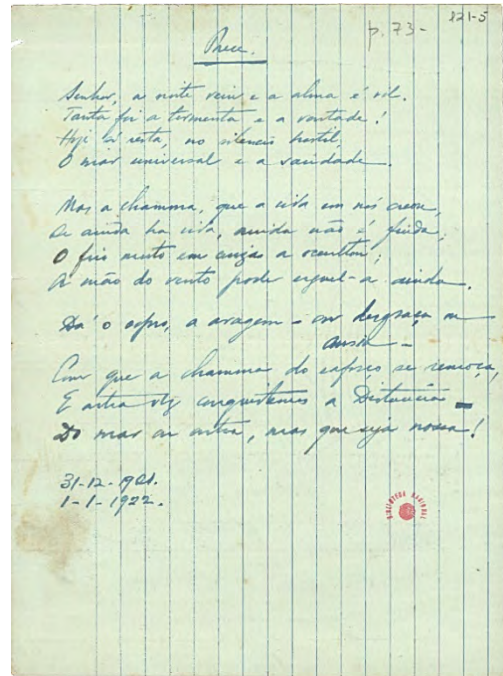 121-5
p. 73-
Prece.
Senhor, a noite veio e a alma é vil.
Tanta foi a tormenta e a vontade!
Hoje só resta, no silencio hostil,
O mar universal e a saudade.
Mas a chamma, que a vida em nós creou,
Se ainda ha vida, ainda não é finda;
O frio morto em cinzas a ocultou;
A mão do vento pode erguel-a ainda.
Dá o sopro, a aragem - ou desgraça ou
ansia -
Com que a chamma do esforço se remoça,
E outra vez conquistemos a Distancia -
Do mar ou outra, mas que seja nossa!
31-12-1921.
1-1-1922.
BIBLIOTECA NACIONAL